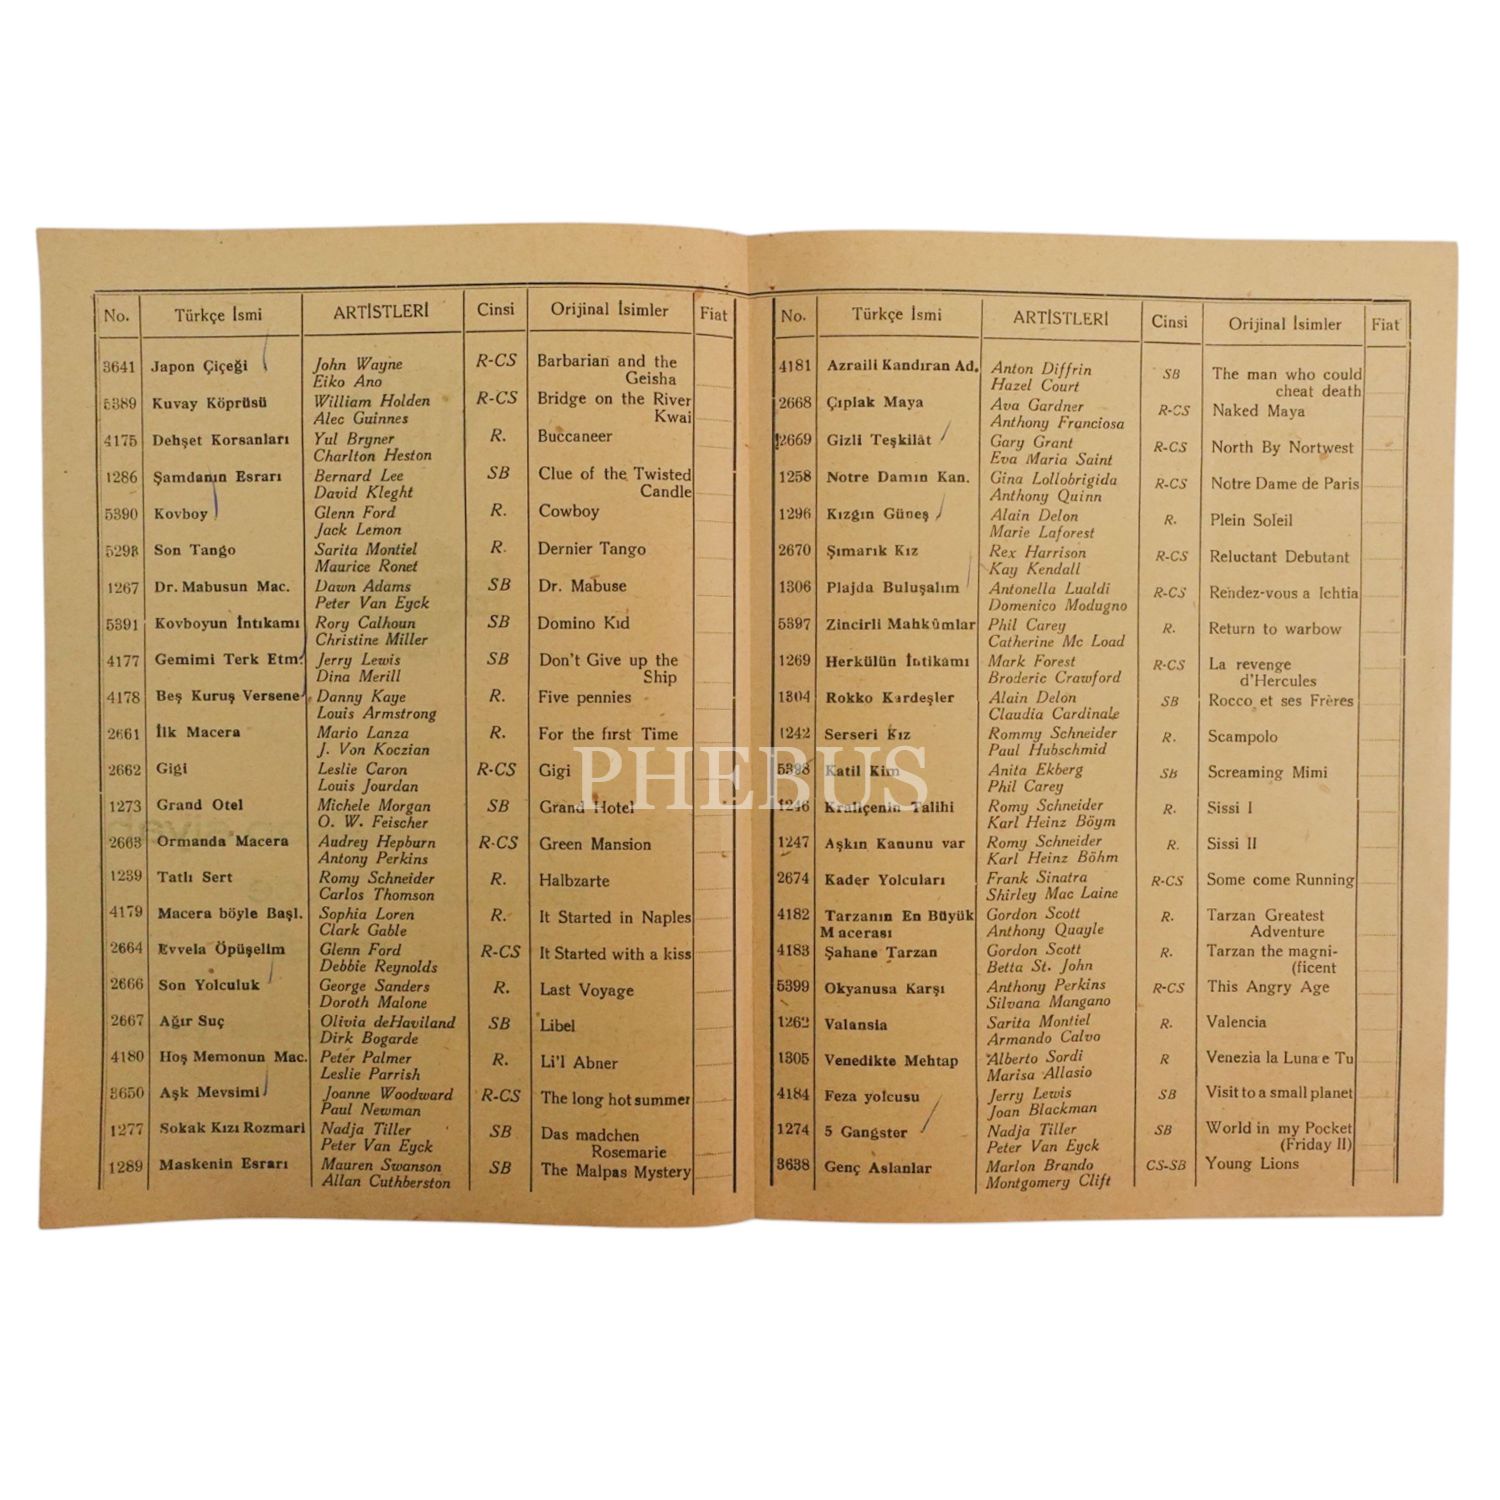 No. Türkçe İsmi ARTİSTLERİ Cinsi Orijinal İsimler Fiat
3641 Japon Çiçeği John Wayne R-CS Barbarian and the
Eiko Ano Geisha
5389 Kuvay Köprüsü William Holden R-CS Bridge on the River
Alec Guinnes Kwai
4175 Dehşet Korsanları Yul Bryner R. Buccaneer
Charlton Heston
1286 Şamdanın Esrarı Bernard Lee SB Clue of the Twisted
David Kleght Candle
5390 Kovboy Glenn Ford R. Cowboy
Jack Lemon
5298 Son Tango Sarita Montiel R. Dernier Tango
Maurice Ronet
1267 Dr. Mabusun Mac. Dawn Adams SB Dr. Mabuse
Peter Van Eyck
5391 Kovboyun İntikamı Rory Calhoun SB Domino Kid
Christine Miller
4177 Gemimi Terk Etm. Jerry Lewis SB Don't Give up the
Dina Merill Ship
4178 Beş Kuruş Versene Danny Kaye R. Five pennies
Louis Armstrong
2661 İlk Macera Mario Lanza R. For the fırst Time
J. Von Koczian
2662 Gigi Leslie Caron R-CS Gigi
Louis Jourdan
1273 Grand Otel Michele Morgan SB Grand Hotel
O. W. Feischer
2663 Ormanda Macera Audrey Hepburn R-CS Green Mansion
Antony Perkins
1239 Tatlı Sert Romy Schneider R. Halbzarte
Carlos Thomson
4179 Macera böyle Başl. Sophia Loren R. It Started in Naples
Clark Gable
2664 Evvela Öpüşelim Glenn Ford R-CS It Started with a kiss
Debbie Reynolds
2666 Son Yolculuk George Sanders R. Last Voyage
Doroth Malone
2667 Ağır Suç Olivia deHaviland SB Libel
Dirk Bogarde
4180 Hoş Memonun Mac. Peter Palmer R. Li'l Abner
Leslie Parrish
3650 Aşk Mevsimi Joanne Woodward R-CS The long hot summer
Paul Newman
1277 Sokak Kızı Rozmari Nadja Tiller SB Das madchen
Peter Van Eyck Rosemarie
1289 Maskenin Esrarı Mauren Swanson SB The Malpas Mystery
Allan Cuthberston
No. Türkçe İsmi ARTİSTLERİ Cinsi Orijinal İsimler Fiat
4181 Azraili Kandıran Ad. Anton Diffrin SB The man who could
Hazel Court cheat death
2668 Çıplak Maya Ava Gardner R-CS Naked Maya
Anthony Franciosa
2669 Gizli Teşkilât Gary Grant R-CS North By Nortwest
Eva Maria Saint
1258 Notre Damın Kan. Gina Lollobrigida R-CS Notre Dame de Paris
Anthony Quinn
1296 Kızğın Güneş Alain Delon R. Plein Soleil
Marie Laforest
2670 Şımarık Kız Rex Harrison R-CS Reluctant Debutant
Kay Kendall
1306 Plajda Buluşalım Antonella Lualdi R-CS Rendez-vous a Ichtia
Domenico Modugno
5397 Zincirli Mahkûmlar Phil Carey R. Return to warbow
Catherine Mc Load
1269 Herkülün İntikamı Mark Forest R-CS La revenge
Broderic Crawford d'Hercules
1304 Rokko Kardeşler Alain Delon SB Rocco et ses Frères
Claudia Cardinale
1242 Serseri Kız Rommy Schneider R. Scampolo
Paul Hubschmid
5398 Katil Kim Anita Ekberg SB Screaming Mimi
Phil Carey
1246 Kraliçenin Talihi Romy Schneider R. Sissi I
Karl Heinz Böym
1247 Aşkın Kanunu var Romy Schneider R. Sissi II
Karl Heinz Böhm
2674 Kader Yolcuları Frank Sinatra R-CS Some come Running
Shirley Mac Laine
4182 Tarzanın En Büyük Gordon Scott R. Tarzan Greatest
Macerası Anthony Quayle Adventure
4183 Şahane Tarzan Gordon Scott R. Tarzan the magni-
Betta St. John (ficent
5399 Okyanusa Karşı Anthony Perkins R-CS This Angry Age
Silvana Mangano
1262 Valansia Sarita Montiel R. Valencia
Armando Calvo
1305 Venedikte Mehtap Alberto Sordi R Venezia la Luna e Tu
Marisa Allasio
4184 Feza yolcusu Jerry Lewis SB Visit to a small planet
Joan Blackman
1274 5 Gangster Nadja Tiller SB World in my Pocket
Peter Van Eyck (Friday II)
3638 Genç Aslanlar Marlon Brando CS-SB Young Lions
Montgomery Clift
PHEBUS